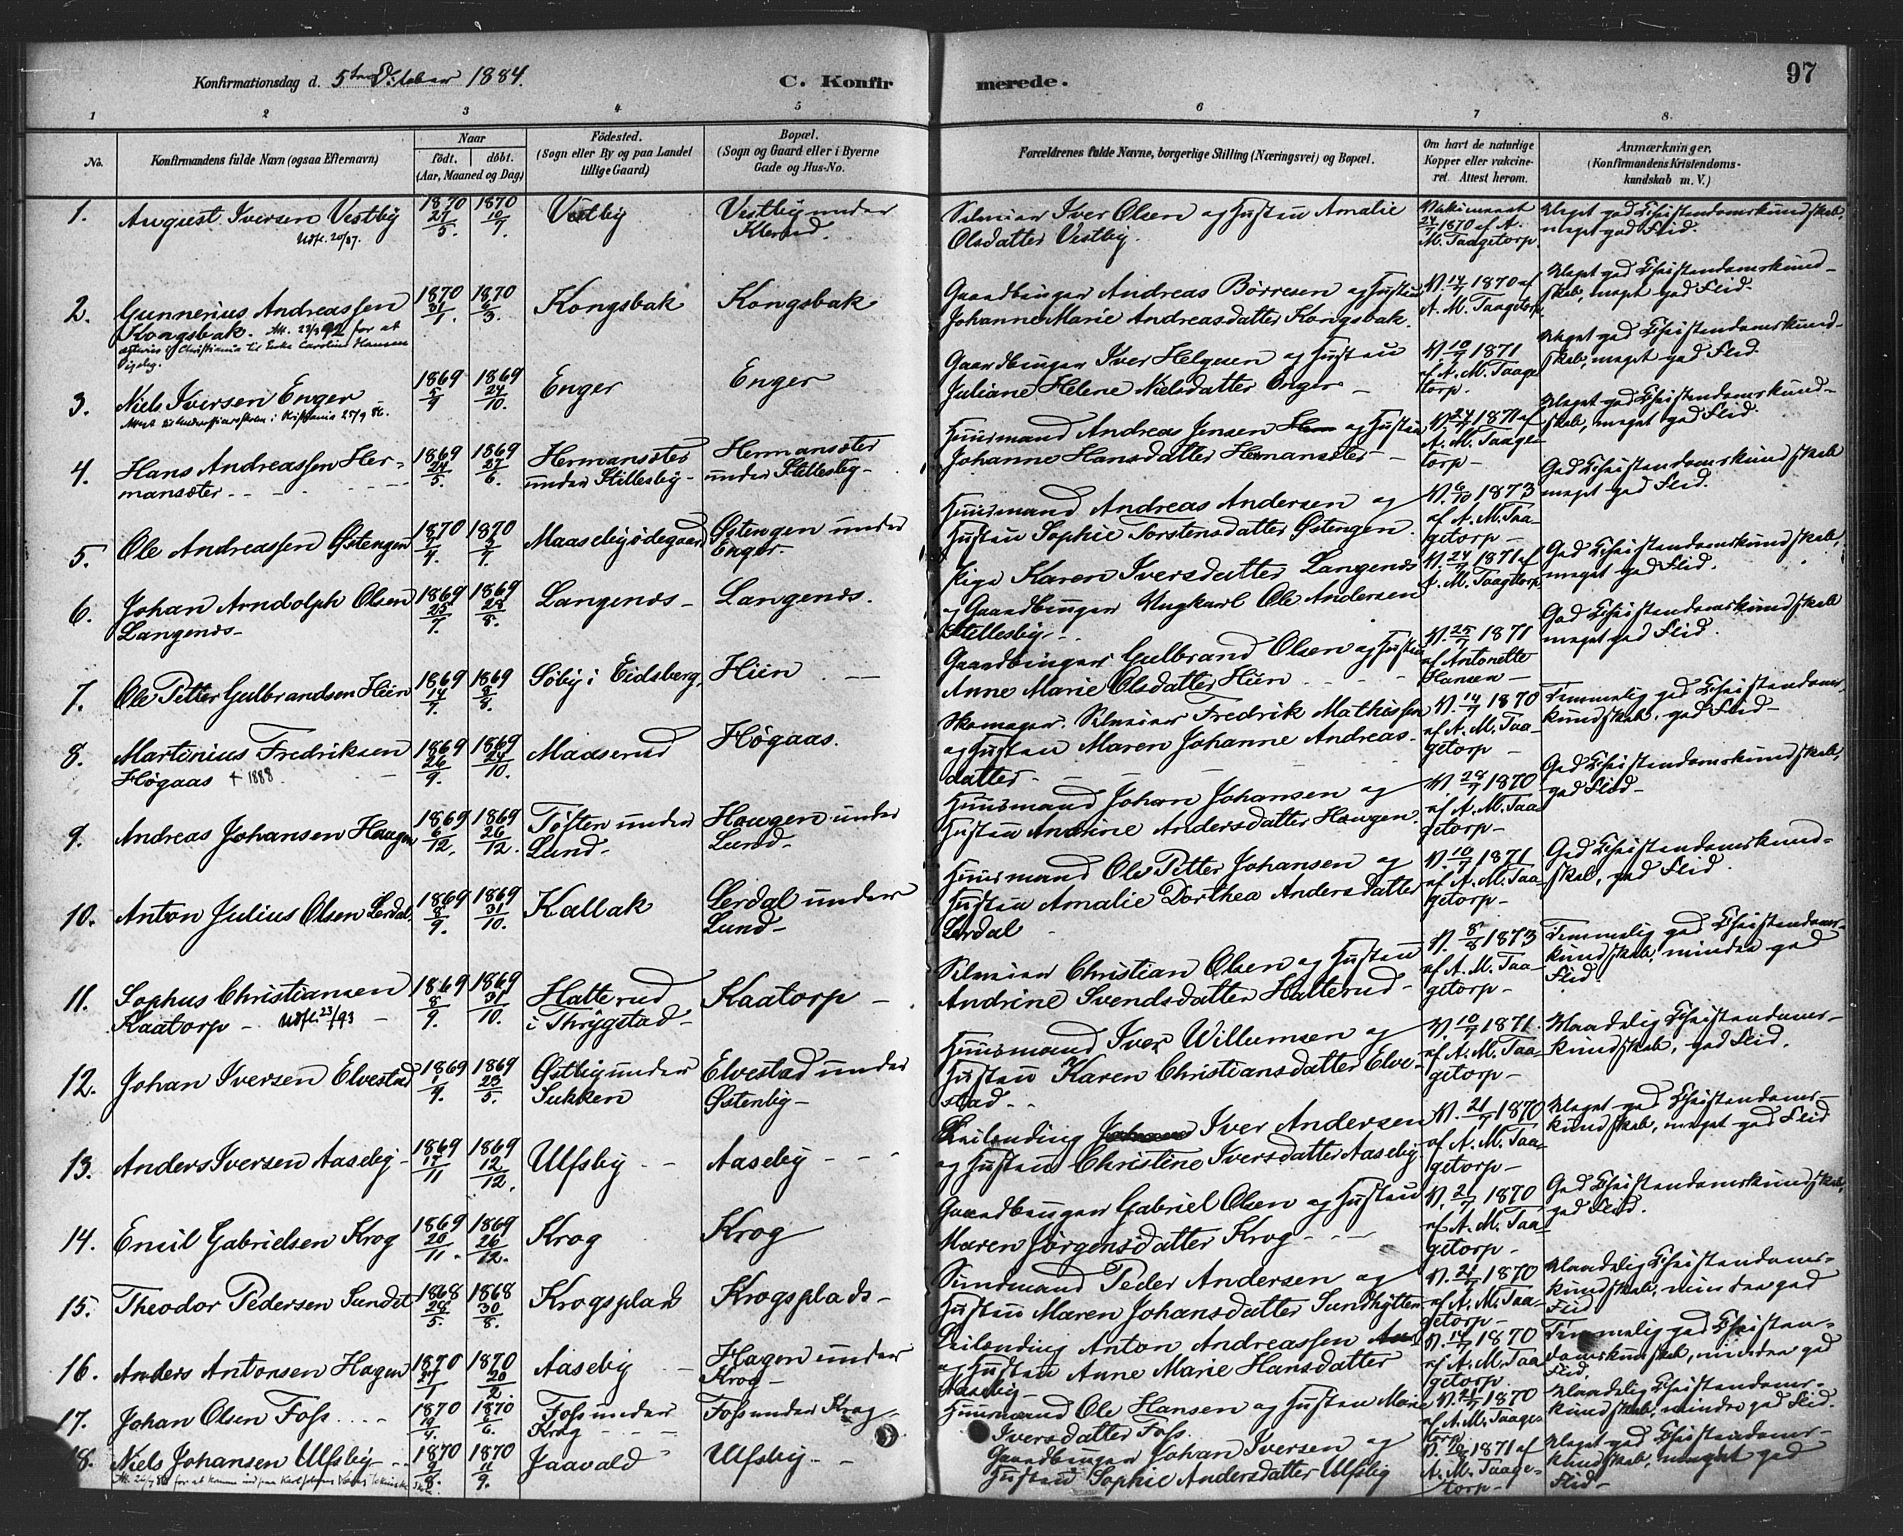 Konfirmationsdag d. 5te October 1884.
C. Konfirmerede.
97
1 2 3 4 5 6 7 8
No.
Konfirmandens fulde Navn (ogsaa Efternavn)
Naar
födt. döbt.
(Aar, Maaned og Dag)
Födested.
(Sogn eller By og paa Landet
tillige Gaard)
Bopæl.
(Sogn og Gaard eller i Byerne
Gade og Hus-No.
Forældrenes fulde Navne, borgerlige Stilling (Næringsvei) og Bopæl.
Om havt de naturlige
Kopper eller vakcine-
ret. Attest herom.
Anmærkninger.
(Konfirmandens Kristendoms-
kundskab m. V.)
1. August Iversen Vestby 1870 27/5. 1870 10/7. Vestby Vestby under
Udfl. 20/87.
Klerud.
Selveier Iver Olsen og Hustru Amalie
Olsdatter Vestby.
Vakcineret
24/7 1870 af A.
M. Taagetorp.
Meget god Christendomskundskab,
meget god Flid.
2. Gunnerius Andreassen 1870 31/1. 1870 6/3. Kongsbak Kongsbak
Kongsbak. Att. 23/3 92 for at
Christiania til Enke Caroline Hansen
Gaardbruger Andreas Börresen og Hustru
Johanne Marie Andreasdatter Kongsbak.
V. 14/7 1870 af
A. M. Taagetorp
Meget god Christendomskund-
skab, meget god Flid.
3. Niels Iversen Enger 1869 5/9 1869 24/10. Enger Enger
Attest til Underofficerskolen i Kristiania 25/9 86.
Gaardbruger Iver Helgesen og Hustru
Juliane Helene Nielsdatter Enger
V. 10/7 1871
af A. M. Taage
torp.
Meget god Christendomskund-
skab, meget god Flid.
4. Hans Andreassen Her- 1869 24/5. 1869 27/6. Hermansæter Hermansæter
mansæter
under Stillesby under Stillesby
Huusmand Andreas Jensen og Hustru
Johanne Hansdatter Hermansæter
V. 24/7 1871 af
A. M. Taage-
torp
Meget god Christendomskund-
skab, meget god Flid.
5. Ole Andreassen Østengen 1870 1870 Maasebyødegaard Østengen under
Enger
Huusmand Andreas Andersen og
Hustru Sophie Torstensdatter Østengen.
V. 6/10 1873
af A. M. Taa-
getorp
God Christendomskundskab
meget god Flid.
6. Johan Arndolph Olsen 1869 25/7. 1869 28/8. Langenes Langenes.
Langenes
Pige Karen Iversdatter Langenes
og Gaardbruger Ungkarl Ole Andersen
Stillesby
V. 24/7 1871 af
A. M. Taagtorp
God Christendomskundskab,
meget god Flid.
7. Ole Petter Gulbrandsen Hien 1869 14/7. 1869 8/8. Søby i Eidsberg, Hien
Gaardbruger Gulbrand Olsen og Hustru
Anne Marie Olsdatter Hien
V. 25/7 1871
af Antonette
Hansen
God Christendomskundskab
meget god Flid.
8. Martinius Fredriksen 1869 26/9. 1869 24/10. Maaserud Høgaas.
Høgaas † 1888
Skomager. Selveier Fredrik Mathissen
og Hustru Maren Johanne Andreas-
datter
V. 14/7 1870
af A. M. Taa-
getorp
Temmelig god Christendoms-
kundskab, god Flid
9. Andreas Johansen Haugen 1869 6/12. 1869 26/12. Tøften under Haugen under
Lund Lund
Huusmand Johan Johansen og
Hustru Andrine Andersdatter Haugen.
V. 28/7 1870
af A. M. Taa
getorp
God Christendomskundskab,
god Flid
10. Anton Julius Olsen Lerdal. 1869 8/9. 1869 31/10. Kallak Lerdal under
Lund
Huusmand Ole Petter Johansen og
Hustru Amalie Dorthea Andersdatter
Lerdal
V. 10/7 1871
af A. M. Taa-
getorp
God Christendomskund-
skab, god Flid.
11. Sophus Christiansen 1869 8/9. 1869 31/10. Hatterud Kaatorp
Kaatorp Udfl. 23/93
i Thrygstad
Selveier Christian Olsen og Hustru
Andrine Svendsdatter Hatterud
V. 8/8 1873
af A. M. Taa-
getorp
Temmelig god Christendoms-
kundskab, mindre god
Flid.
12. Johan Iversen Elvestad 1869 1869 23/5. Østby under Elvestad under
Sukken Østenby
Huusmand Iver Willumsen og
Hustru Karen Christiansdatter Elve-
stad
V. 10/7 1871.
af A. M. Taa-
getorp
Maadelig Christendoms-
kundskab, god Flid.
13. Anders Iversen Aaseby 1869 15/11 1869 12/12. Ulfsby Aaseby
Leilending Iver Andersen
og Hustru Christine Iversdatter Aaseby.
V. 21/7 1870
af A. M. Taa-
getorp
Meget god Christendoms-
kundskab, meget god Flid
14. Emil Gabrielsen Krog 1869 20/11. 1869 26/12. Krog Krog
Gaardbruger Gabriel Olsen og Hustru
Maren Jørgensdatter Krog
V. 21/7 1870
af A. M. Taa
getorp
God Christendomskundskab,
god Flid.
15. Theodor Pedersen Sundet 1868 28/5. 1868 30/8. Krogsplads Krogsplads
Sundmand Peder Andersen og
Hustru Maren Johansdatter Sundhytten
V. 21/7 1870
af A. M. Taa-
getorp
Maadelig Christendoms-
kundskab, mindre god
Flid
16. Anders Antonsen Hagen 1870 27/1 1870 20/2. Aaseby Hagen under
Krog
Leilending Anton Andreassen
og Hustru Anne Marie Hansdatter
Aaseby
V. 14/7 1870
af A. M. Taa
getorp.
Temmelig god Christen-
domskundskab, mindre god
Flid.
17. Johan Olsen Foss 1870 1870 6/6. Foss under Foss under Krog
Krog
Huusmand Ole Hansen og Hustru Marie
Iversdatter Foss.
V. 21/7 1870
af A. M. Taage-
torp
Maadelig Christendoms-
kundskab, mindre god Flid.
18. Niels Johansen Ulfsby 1870 1870 Jaavald Ulfsby
Gaardbruger Johan Iversen og
Hustru Sophie Andersdatter Ulfsby
1871 af
A. M. Taage-
torp
Meget god Christendoms-
kundskab, meget god
Flid